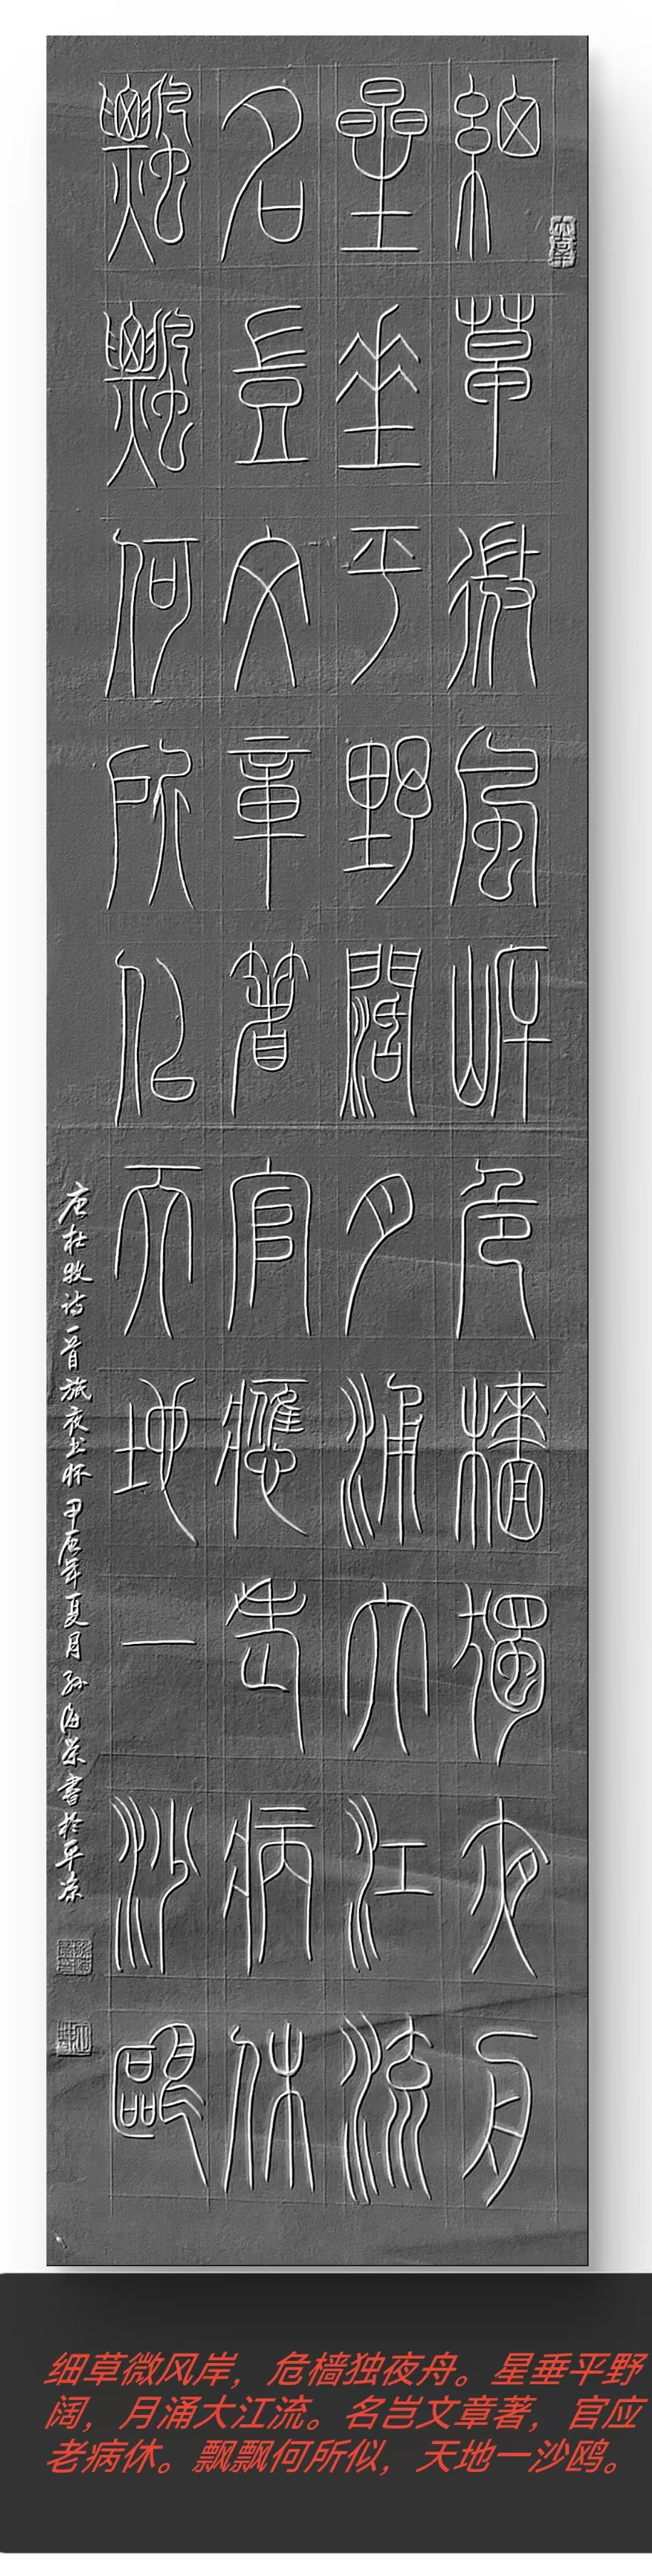 细草微风岸危樯独夜舟
星垂平野阔月涌大江流
名岂文章著官应老病休
飘飘何所似天地一沙鸥
唐杜牧诗一首旅夜书怀甲辰年夏月孙海荣书於平凉
细草微风岸，危樯独夜舟。星垂平野
阔，月涌大江流。名岂文章著，官应
老病休。飘飘何所似，天地一沙鸥。